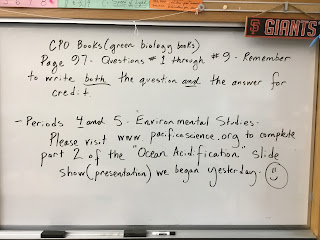 GIANTS
CPO Books (green biology books)
Page 97. Questions #1 through #9. Remember
to write both the question and the answer for
credit.
- Periods 4 and 5. Environmental Studies.
Please visit www.pacificoscience.org to complete
part 2 of the "Ocean Acidification" slide
show (presentation) we began yesterday.